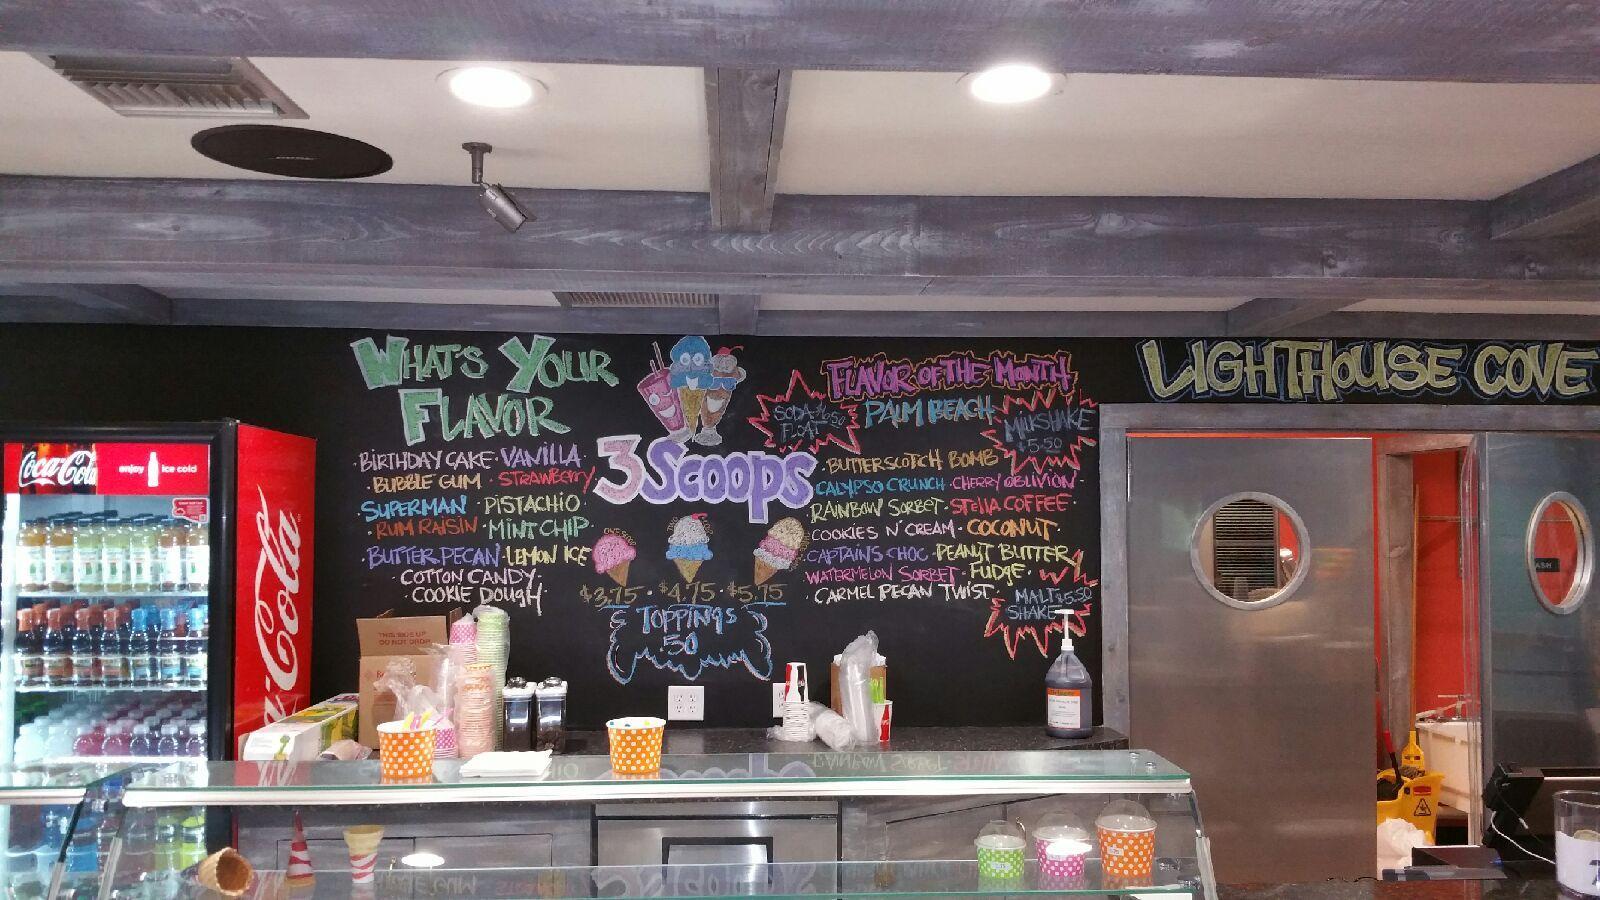 WHAT'S YOUR
FLAVOR
·BIRTHDAY CAKE·VANILLA
·BUBBLE GUM ·STRAWBERRY
·SUPERMAN ·PISTACHIO
·RUM RAISIN ·MINT CHIP
·BUTTER PECAN·LEMON ICE
COTTON CANDY·
COOKIE DOUGH
3 SCOOPS
$3.75 · $4.75 · $5.75
TOPPINGS
.50
FLAVOR OF THE MONTH
PALM BEACH
SODA
FLOAT
MILKSHAKE
$5.50
·BUTTERSCOTCH BOMB
CALYPSO CRUNCH ·CHERRY OBLIVION
RAINBOW SORBET ·STELLA COFFEE
COOKIES N' CREAM ·COCONUT
·CAPTAIN'S CHOC ·PEANUT BUTTER
WATERMELON SORBET· FUDGE
·CARMEL PECAN TWIST
MALT $5.50
SHAKE
LIGHTHOUSE COVE
Coca-Cola
enjoy ice cold
Coca-Cola
THIS SIDE UP
DO NOT DROP